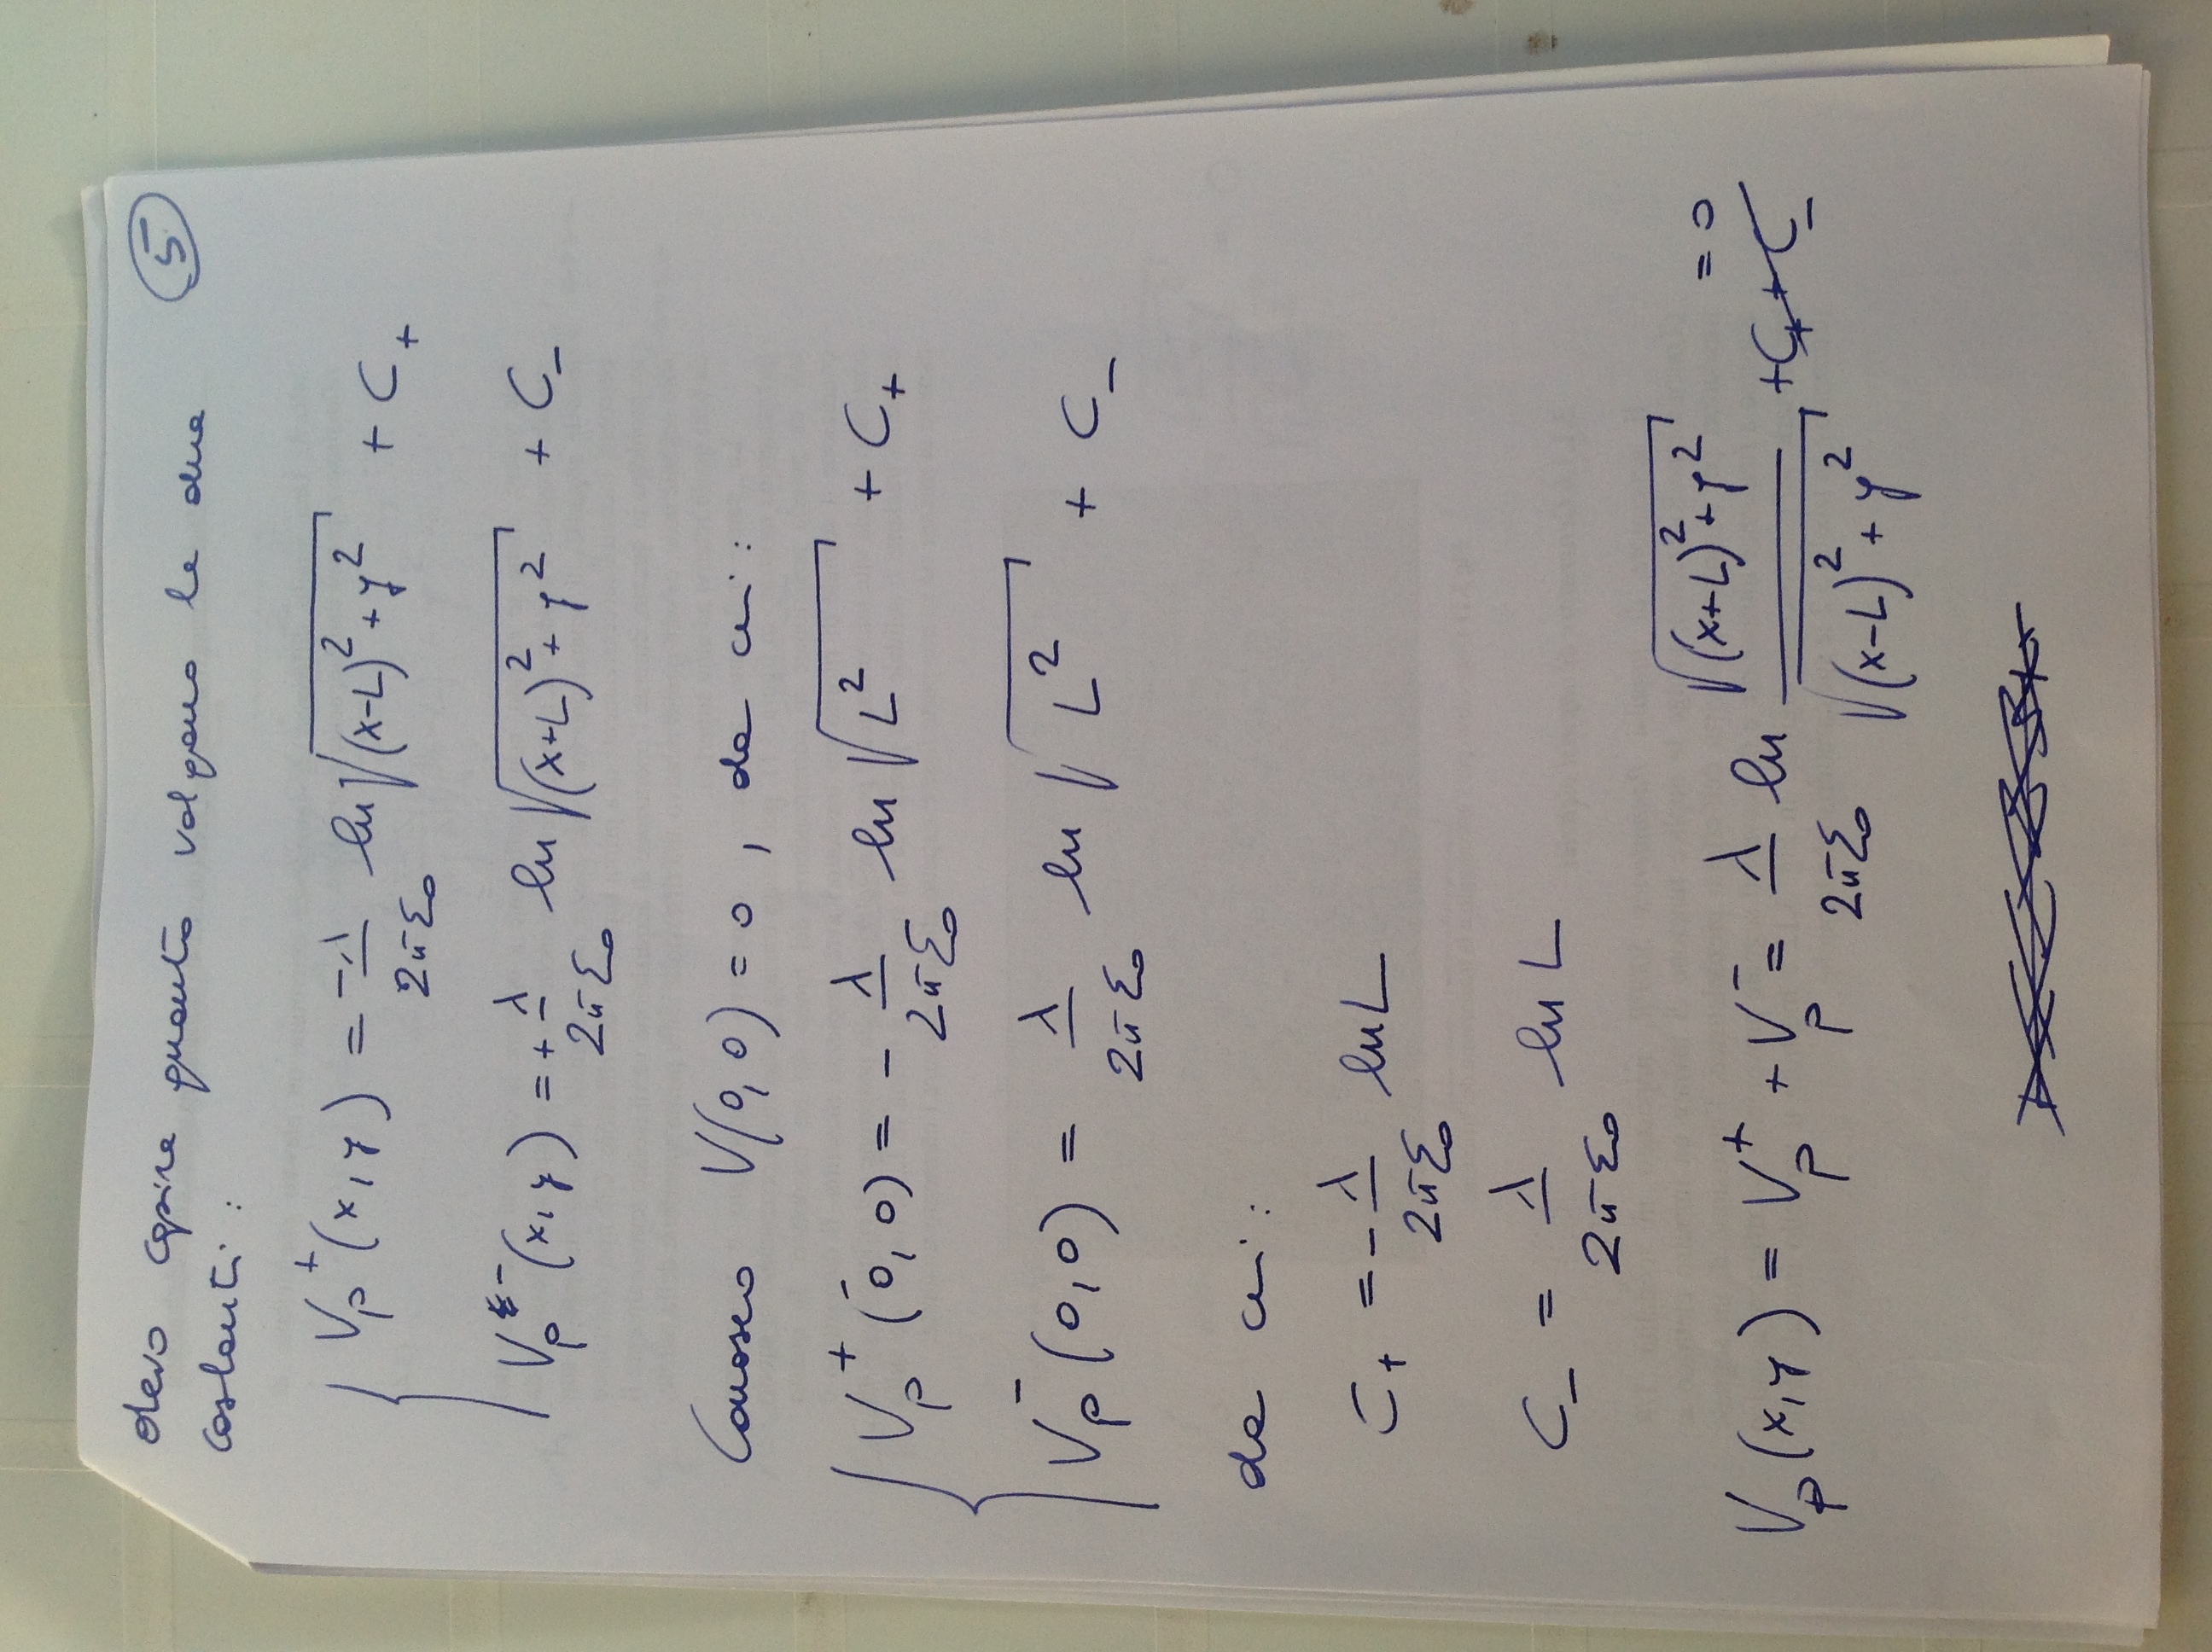 devo capire quanto valgano le due
⑤
costanti :
V_P^+ (x, y) = -λ/2πε₀ ln √((x-L)² + y²) + C₊
V_P^- (x, y) = + λ/2πε₀ ln √((x+L)² + y²) + C₋
Conosco V(0, 0) = 0 , da cui :
V_P^+ (0, 0) = - λ/2πε₀ ln √(L²) + C₊
V_P^- (0, 0) = λ/2πε₀ ln √(L²) + C₋
da cui :
C₊ = - λ/2πε₀ ln L
C₋ = λ/2πε₀ ln L
V_P (x, y) = V_P^+ + V_P^- = λ/2πε₀ ln √((x+L)² + y²)/√((x-L)² + y²) + C₊ + C₋ = 0